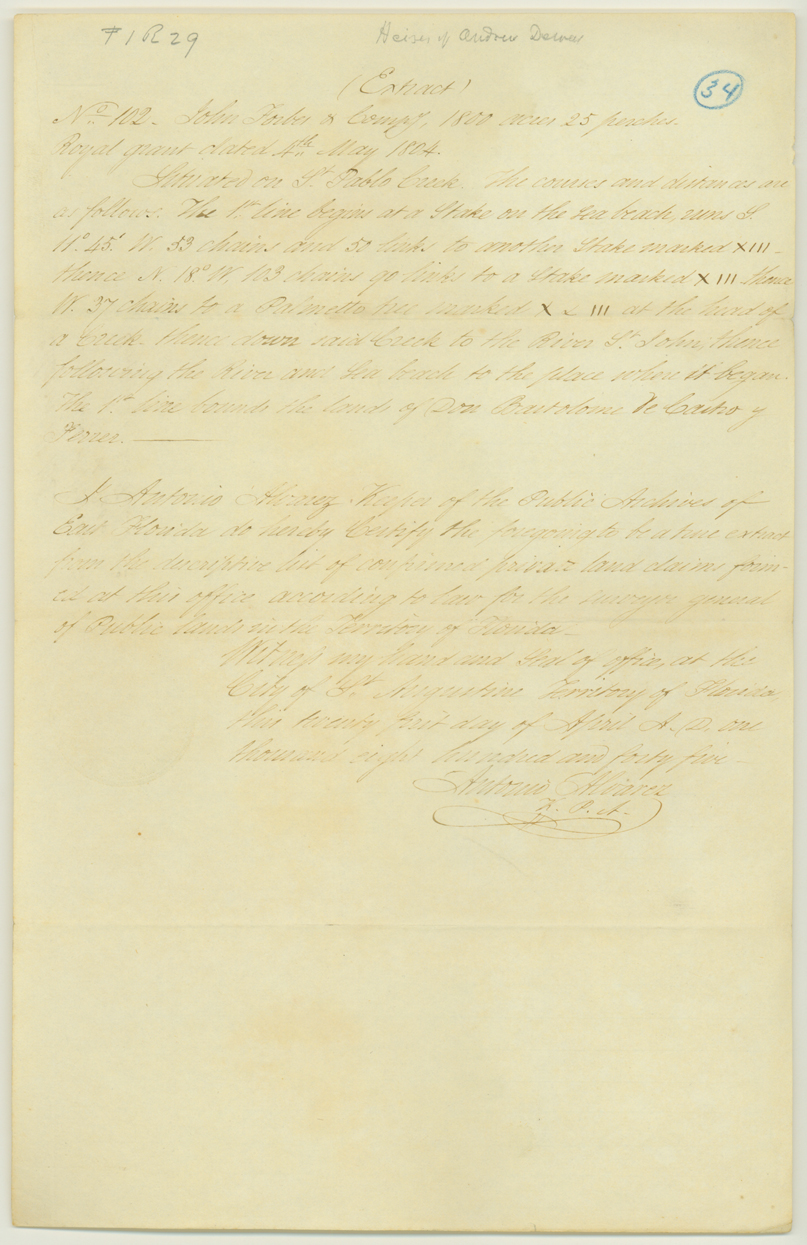 F 1 R 29
Heirs of Andrew Dewees
(Extract)
34
No. 102. John Forbes & Compy, 1800 acres 25 perches.
Royal grant dated 4th May 1804.
Situated on St. Pablo Creek. The courses and distances are
as follows. The 1st line begins at a Stake on the sea beach, runs S.
11° 45' W. 53 chains and 50 links to another Stake marked X III -
thence N. 18° W. 103 chains 90 links to a Stake marked X III thence
W. 37 chains to a Palmetto tree marked X L III at the head of
a creek. thence down said Creek to the River St. John, thence
following the River and Sea beach to the place where it began.
The 1st line bounds the lands of Don Bartolome de Castro y
Ferrer.
I Antonio Alvarez Keeper of the Public Archives of
East Florida do hereby Certify the foregoing to be a true extract
from the descriptive list of confirmed private land claims form-
ed at this office according to law for the surveyor general
of Public lands in the Territory of Florida -
Witness my hand and Seal of office, at the
City of St. Augustine Territory of Florida,
this twenty first day of April A. D. one
thousand eight hundred and forty five -
Antonio Alvarez
K. P. A.